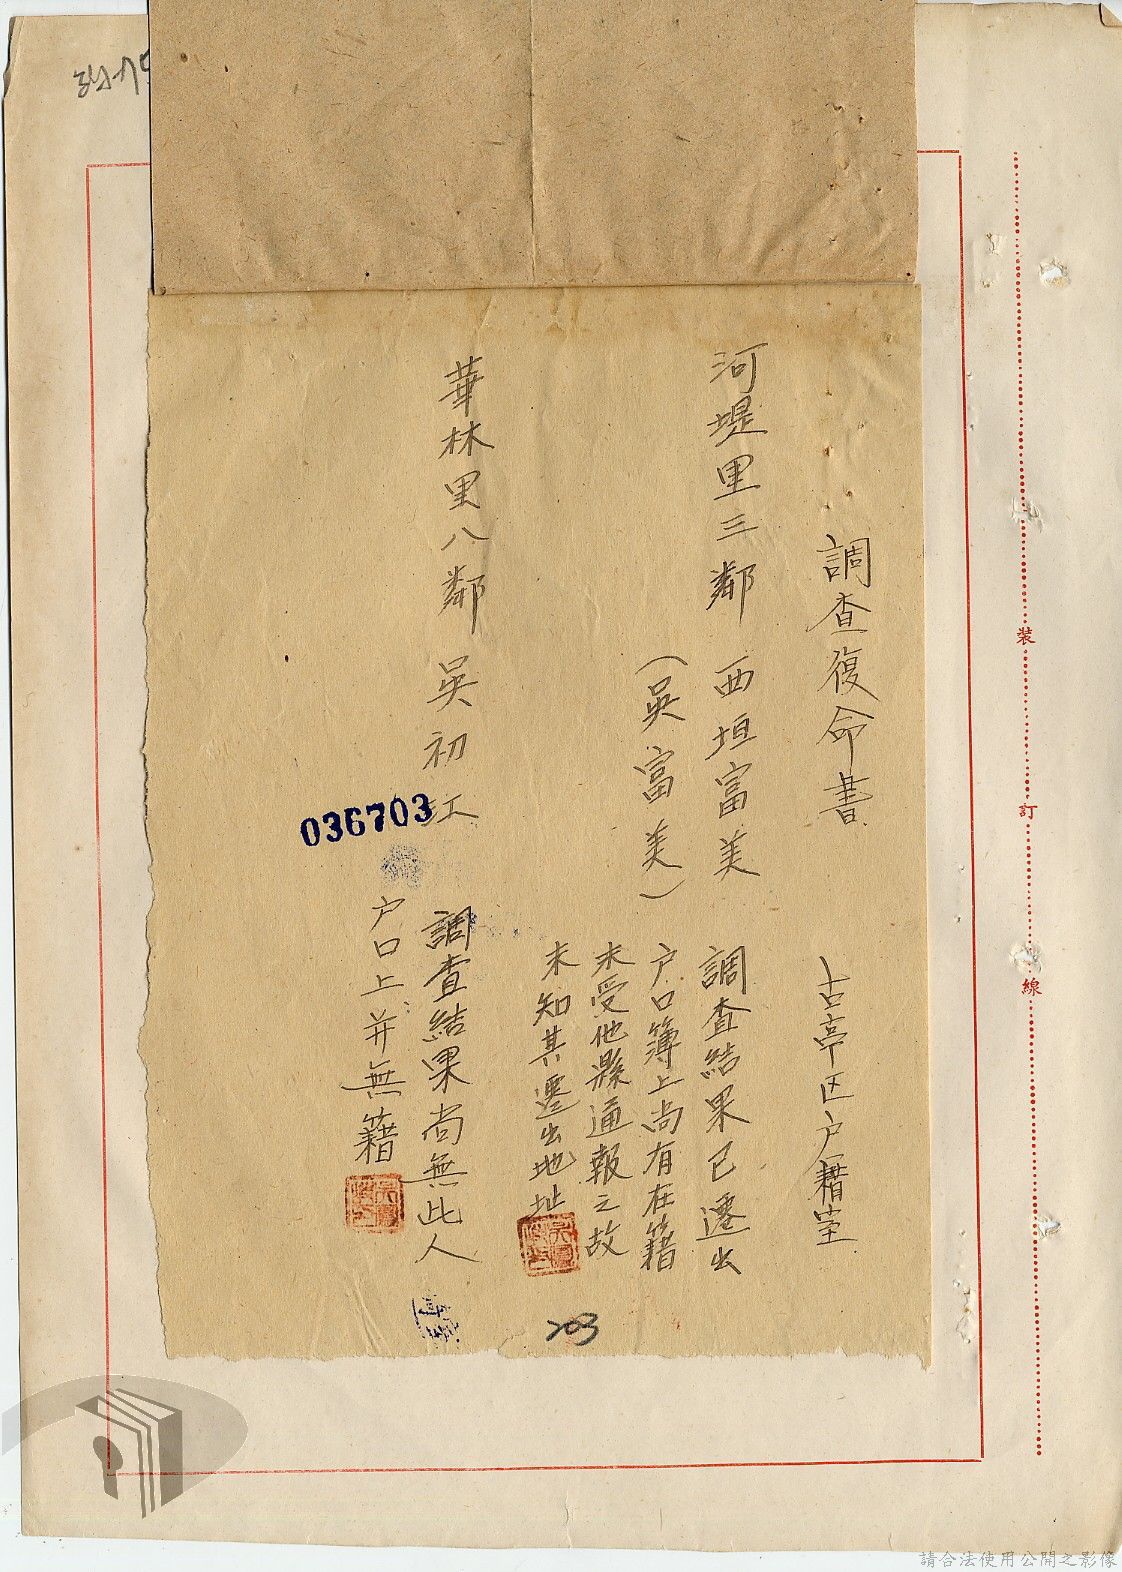 調查復命書　古亭区户籍室
河堤里三鄰　西垣富美　調查結果已遷出
（吳富美）　户口簿上尚有在籍
未受他縣通報之故
未知其遷出地址
華林里八鄰　吳初江　調查結果尚無此人
户口上并無籍
036703
203
裝
訂
線
請合法使用公開之影像